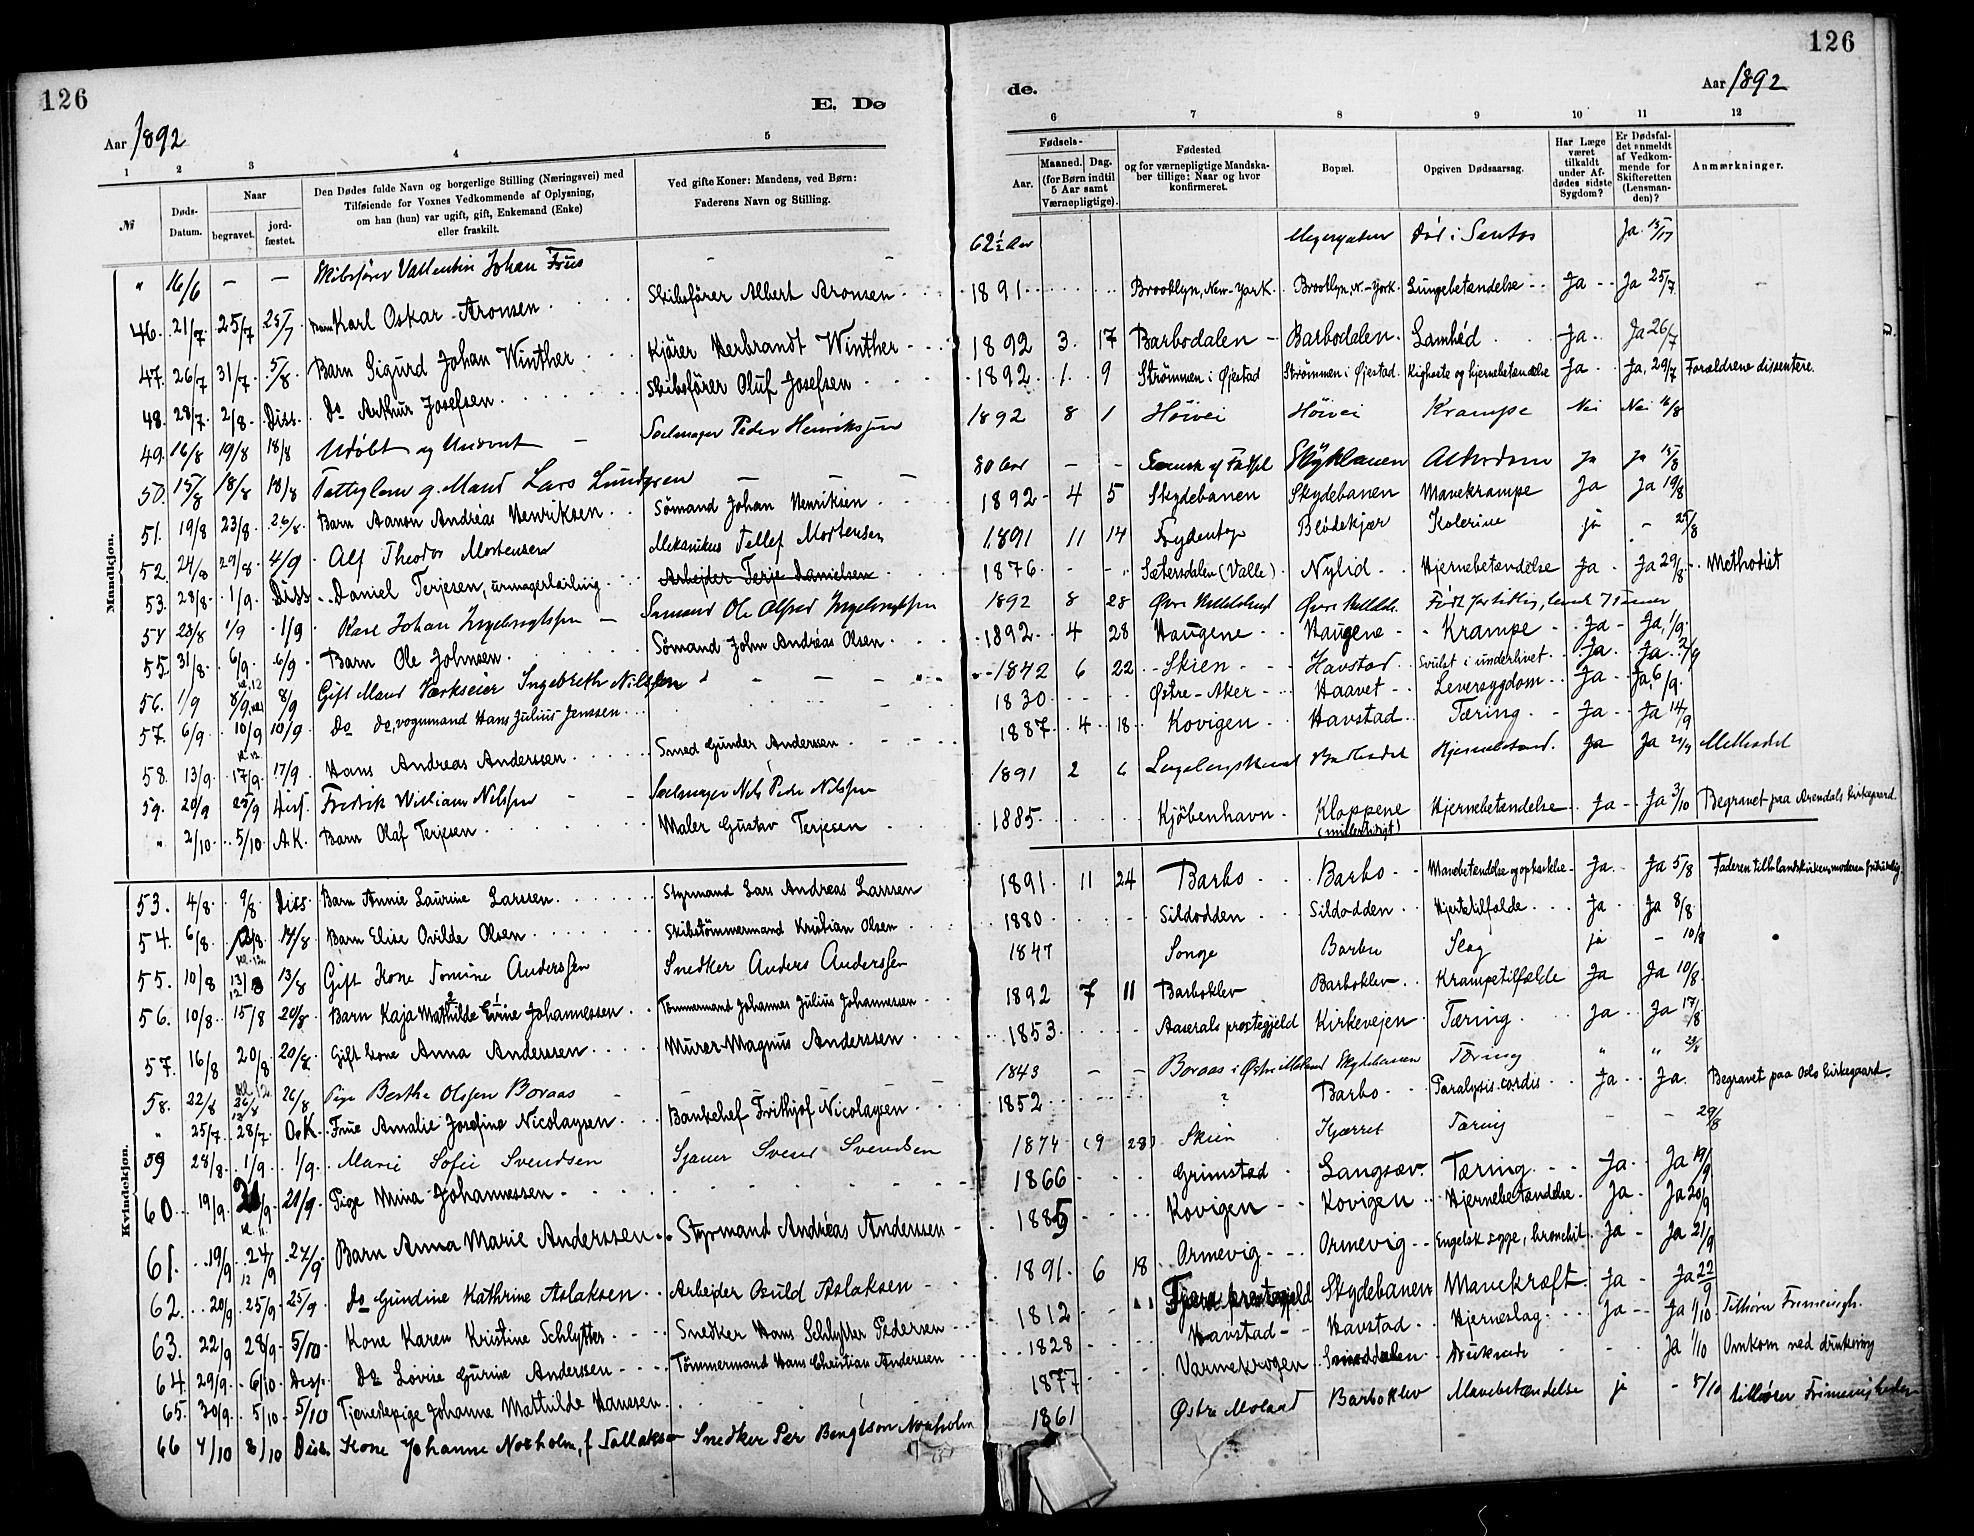 126
E. Dø
Aar 1892
1 2 3 4 5
№
Døds-Datum.
Naar
begravet.
jord-fæstet.
Den Dødes fulde Navn og borgerlige Stilling (Næringsvei) med
Tilføiende for Voxnes Vedkommende af Oplysning,
om han (hun) var ugift, gift, Enkemand (Enke)
eller fraskilt.
Ved gifte Koner: Mandens, ved Børn:
Faderens Navn og Stilling.
Mandkjøn.
" 16/6 — — Skibsfører Vallentin Johan Friis -
46. 21/7. 25/7 25/7 Barn Karl Oskar Aronsen Skibsfører Albert Aronsen
47. 26/7 31/7 5/8 Barn Sigurd Johan Winther Kjører Herbrandt Winther
48. 28/7 2/8 Diss. do Arthur Josefsen Skibsfører Oluf Josefsen
49. 16/8 19/8 18/8 Udøbt og Unævnt Seelmager Peder Henriksen
50. 15/8 18/8 18/8 Fattiglem g. Mand Lars Lundgren
51. 19/8 23/8 26/8 Barn Aanon Andreas Henriksen Sømand Johan Henriksen
52. 24/8 29/8 4/9 Alf Theodor Mortensen Mekanikus Tellef Mortensen
53. 28/8 1/9 Diss. Daniel Terjesen, urmagerlærling Arbejder Terje Danielsen
54 28/8 1/9 1/9 Karl Johan Ingebregtsen Sømand Ole Alfred Ingebregtsen
55. 31/8 6/9 6/9 Barn Ole Johnsen Sømand John Andreas Olsen
56. 1/9 8/9 8/9 Gift Mand Værkseier Ingebreth Nilssen
57. 6/9 10/9 10/9 do do, vognmand Hans Julius Jenssen
58. 13/9 17/9 17/9 Hans Andreas Anderssen Smed Gunder Anderssen
59. 20/9 25/9 Diss. Fredrik William Nilssen Seelmager Nils Peder Nilssen
" 2/10 5/10 A.K. Barn Olaf Terjesen Maler Gustav Terjesen
Kvindekjøn.
53. 4/8 9/8 Diss Barn Annie Laurine Larssen Styrmand Lars Andreas Larssen
54. 6/8 12/8 14/8 Barn Elise Ovilde Olsen Skibstömmermand Kristian Olsen
55. 10/8 13/8 13/8 Gift Kone Tomine Anderssen Snedker Anders Anderssen
56. 10/8 15/8 20/8 Barn Kaja Mathilde Eirine Johannessen Tömmermand Johannes Julius Johannessen
57. 16/8 20/8 20/8 Gift kone Anna Anderssen Murer Magnus Anderssen
58. 22/8 26/8 26/8 Pige Berthe Olssen Boraas —
" 25/7 28/7 O.K. Frue Amalie Josefine Nicolaysen Bankchef Frithjof Nicolaysen
59 28/8 1/9 1/9 Marie Sofie Svendsen Sjauer Svend Svendsen
60 19/9 21/9 20/9 Pige Mina Johannessen
61. 19/9 24/9 24/9 Barn Anna Marie Anderssen Styrmand Andreas Anderssen
62. 20/9 25/9 25/9 do Gundine Kathrine Aslaksen Arbejder Osuld Aslaksen
63. 22/9 28/9 5/10 Kone Karen Kristine Schlytter Snedker Hans Schlytter Pedersen
64. 29/9 6/10 Disp. Do Lovise Gurine Anderssen Tömmermand Hans Christian Anderssen
65. 30/9 5/10 5/10 Tjenestepige Johanne Mathilde Hanssen
66 4/10 8/10 Diss. Kone Johanne Noxholm, f Tallaksen Snedker Per Bengtson Noxholm
126
de.
Aar 1892
6 7 8 9 10 11 12
Fødsels-
Aar.
Maaned. Dag.
(for Børn indtil
5 Aar samt
Værnepligtige).
Fødested
og for værnepligtige Mandska-
ber tillige: Naar og hvor
konfirmeret.
Bopæl.
Opgiven Dødsaarsag.
Har Læge
været
tilkaldt
under Af-
dødes sidste
Sygdom?
Er Dødsfal-
det anmeldt
af Vedkom-
mende for
Skifteretten
(Lensman-
den)?
Anmærkninger.
62½ Aar Død i Santos Ja 15/17
1891 Brooklyn, New-York. Brooklyn, N.-York Lungebetændelse Ja Ja 25/7
1892 3. 17 Barbodalen Barbodalen Lamhed Ja Ja 26/7
1892 1. 9 Strömmen i Øjestad Strömmen i Øjestad Kighoste og hjernebetændelse Ja Ja, 29/7 Forældrene dissentere.
1892 8 1 Höivei Höivei Krampe Nei Nei 16/8
80 Aar — - Skytebanen Alderdom Ja Ja 15/8
1892 4 5 Skydebanen Skydebanen Mavekrampe Ja Ja 19/8
1891 11 14 Frydentop Blødekjær Kolerine ja - 25/8
1876 - - Sætersdalen (Valle) Nylid Hjernebetændelse Ja Ja 29/8 Methodist
1892 8 28 Født for tidlig, levede 7 timer
1892 4 28 Haugene Haugene Krampe Ja Ja, 1/9
1842 6 22 Skien Havstad Svulst i underlivet Ja Ja 2/9
1830 Østre-Aker Haavet Leversygdom Ja Ja, 6/9
1887 4 18 Kovigen Havstad Tæring Ja Ja 14/9
1891 2 6 Hjernebetænd. Ja Ja 21/9 Methodist
1885 Kjöbenhavn Kloppene (midlertidigt) Hjernebetændelse Ja Ja 3/10 Begravet paa Arendals kirkegaard.
1891 11 24 Barbo Barbo Mavebetændelse og opkastelse Ja Ja 5/8 Faderen tilh. landskirken, moderen frikirkelig.
1880 Sildodden Sildodden Hjertetilfælde Ja Ja 8/8
1847 Songe Barbu Slag ja - 10/8
1892 7 11 Barboklev Barboklev Krampetilfælde Ja Ja 10/8
1853 Aaserals prestegjeld Kirkevejen Tæring Ja Ja 17/8
1843 — — Boraas i Østre Moland Skydebanen Tæring " " 23/8
1852 ? Barbo Paralysis cordis Ja Ja. Begravet paa Oslo kirkegaard.
1874 (9 28) Skien Kjærret Tæring - - 29/8
1866 Grimstad Langsæv Tæring Ja Ja 19/9
1885 Kovigen Kovigen Hjernebetændelse Ja Ja 20/9
1891 6 18 Ormevig Ormevig Engelsk syge, bronchit. Ja Ja 21/9
1812 Fjære prestegjeld Skydebanen Mavekræft Ja Ja 22/9
1828 Havstad Havstad Hjerneslag Ja Ja 1/10 Tilhører Frimenigh.
1877 Varmekrogen Druknede Ja 1/10 Omkom ved drukning
1861 Østre Moland Barboklev Mavebetændelse ja - 5/10 tilhører Frimenigheden